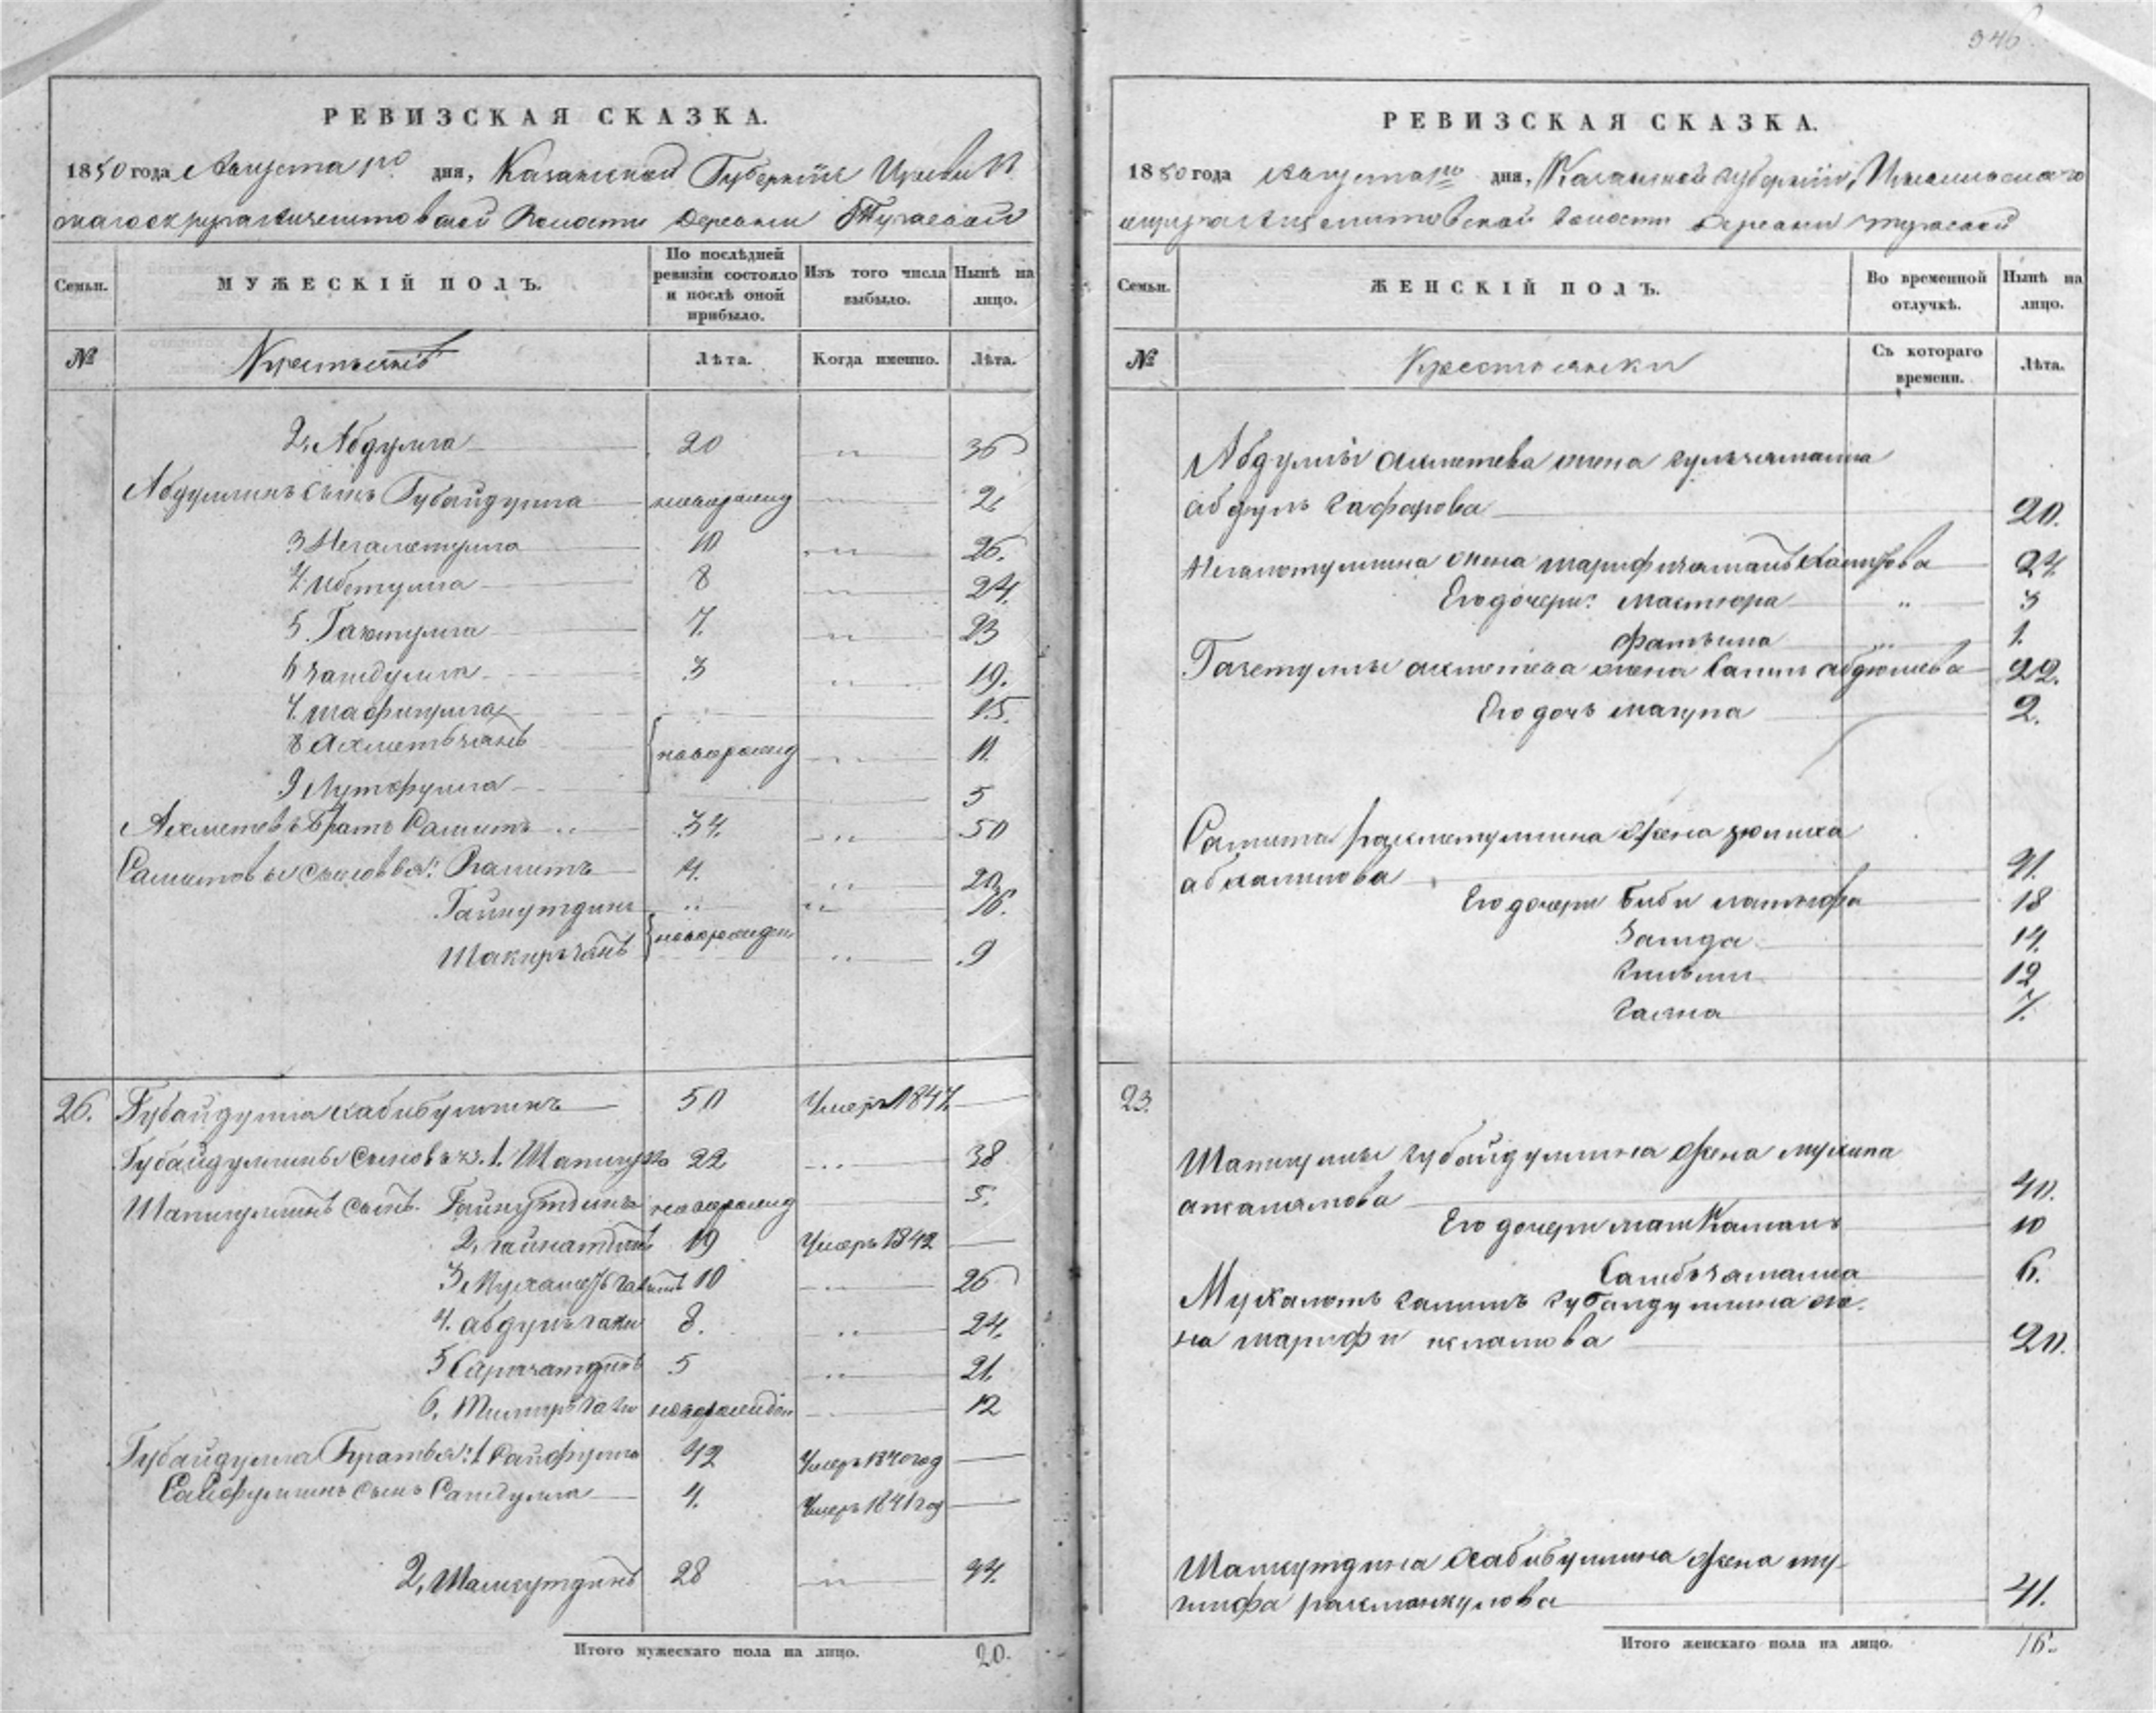 346
РЕВИЗСКАЯ СКАЗКА.
1850 года Августа 1го дня, Казанской Губернiи Цивиль
скаго округа Ачемитовской Волости деревни Тугаевой
Семьи. МУЖЕСКІЙ ПОЛЪ. По послѣдней ревизіи состояло и послѣ оной прибыло. Изъ того числа выбыло. Нынѣ на лицо.
№ Крестьянъ Лѣта. Когда именно. Лѣта.
2, Абдулла 20 " 36
Абдуллинъ сынъ Губайдулла новорожд 2
3 Негаметулла 10 " 26.
4. Ибетулла 8 " 24.
5. Гаетулла 7. " 23
6 Заидулла 3 " 19.
7. Шафигулла 15.
8 Ахметьчанъ новорожд 11.
9 Лутфулла 5
Ахметевъ братъ Самитъ 34. " 50
Самитовы сыновья: Валитъ 4. " 20
Гайнутдинъ " " 16.
Шакирьчанъ новорожден " 9
26. Губайдулла Хабибуллинъ 50 Умеръ 1847.
Губайдуллины сыновья. 1. Шапигулла 22 " 38
Шапигуллинъ сынъ. Гайнутдинъ новорожд 5.
2, Гайнатдинъ 19 Умеръ 1842
3, Мухаметь Галимъ 10 26
4. Абдулъ Гани 8. " 24.
5 Сиразатдинъ 5 " 21.
6. Тимиръ Гали новорожден 12
Губайдуллы братья: 1 Сайфулла 42 Умеръ 1840 год
Сайфуллинъ сынъ Саидулла 4. Умеръ 1841 год
2, Шамсутдинъ 28 " 44.
Итого мужескаго пола на лицо. 20.
РЕВИЗСКАЯ СКАЗКА.
1850 года Августа 1го дня, Казанской Губернiи, Цивильскаго
округа Ачемитовской Волости деревни Тугаевой
Семьи. ЖЕНСКІЙ ПОЛЪ. Во временной отлучкѣ. Нынѣ на лицо.
№ Крестьянки Съ котораго времени. Лѣта.
Абдуллы Ахметева жена Гульчаманна
Абдулъ Гафарова 20.
Негаметуллина жена Шарифчаманъ Хамитова 24.
Его дочери: Мастюра " 3
Фатьима 1.
Гаетуллы Ахметева жена Галии Абдюшева 22.
Его дочь Магупа 2.
Самита Рахметуллина жена Зюлиха
Абхалилова 41.
Его дочери Биби Латыфа 18
Заида 14.
Гильми 12
Галиа 7.
23.
Шапигуллы Губайдуллина жена Мухипа
Аккалямова 40.
Его дочери Махкамалъ 10
Саидьчаманна 6.
Мухаметь Галимъ Губайдуллина же-
на Шарифи Исламова 20.
Шамсутдина Хабибуллина жена
Рахманкулова 41.
Итого женскаго пола на лицо. 16.